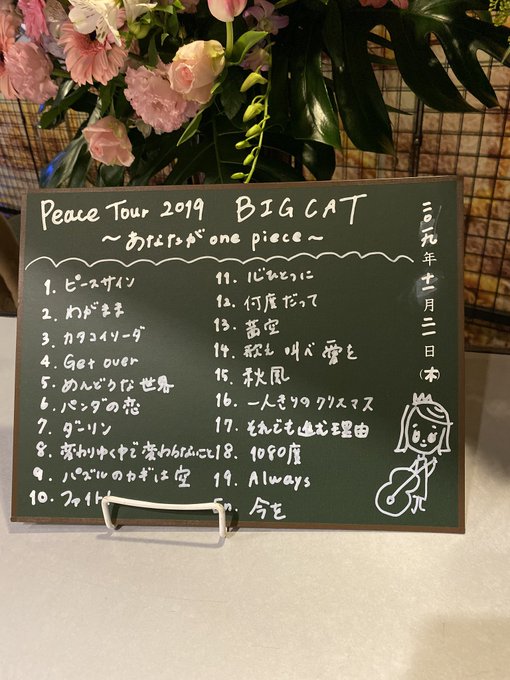 Peace Tour 2019 BIGCAT
～あなたが one piece～
二〇一九年十一月二一日(木)
1. ピースサイン
2. わがまま
3. カタコイリーダ
4. Get over
5. めんどうな世界
6. パンダの恋
7. ダーリン
8. 変わりゆく中で変わらないこと
9. パズルのカギは空
10. ファイト
11. 心ひとつに
12. 何度だって
13. 茜空
14. 歌え 叫べ 愛を
15. 秋風
16. 一人きりのクリスマス
17. それでも進む理由
18. 1080度
19. Always
今を